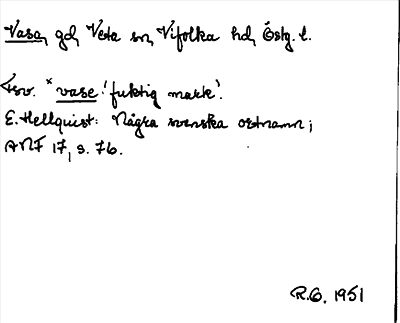 Vasa, gd, Vesta sn, Vifolka hd, Östg. l.
Fsv. *vase 'fuktig mark'.
E. Hellquist: Några svenska ortnamn;
ANF 17, s. 76.
R.G. 1951